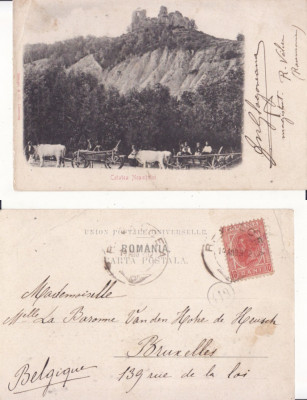 Cetatea Neamțului
magistrat R. Vâlcea
(Roumanie)
UNION POSTALE UNIVERSELLE.
ROMANIA
CARTA POSTALA
Mademoiselle
Mlle La Baronne Van den Hove de Heusch
Bruxelles
139 rue de la loi
Belgique